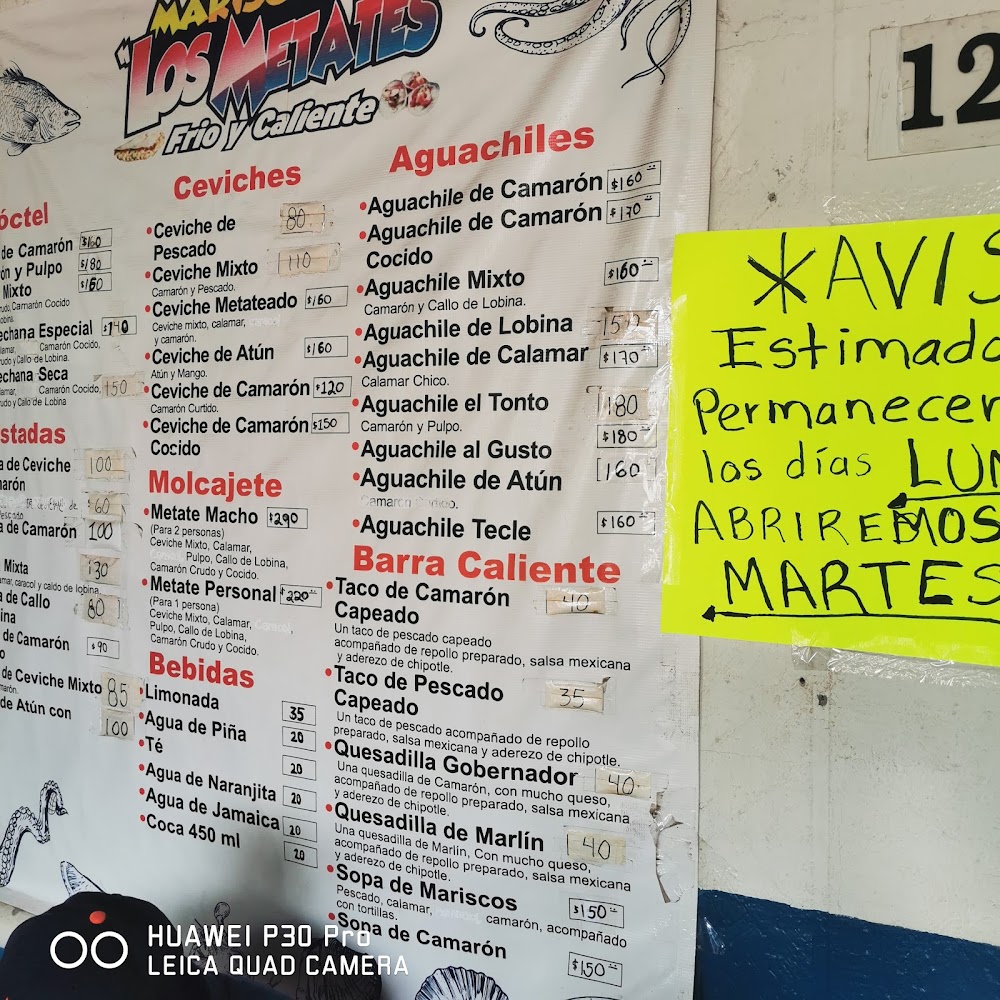 MARISCOS
"LOS METATES
Frio y Caliente
óctel
de Camarón $160
ón y Pulpo $180
Mixto $160
rudo, Camarón Cocido
obina.
echana Especial $140
lamar, Camarón Cocido,
rudo y Callo de Lobina.
echana Seca
amar, Camarón Cocido, 150
rudo y Callo de Lobina
stadas
a de Ceviche 100
marón
$60
a de Camarón 100
Mixta 130
amar, caracol y caldo de lobina.
a de Callo 80
bina
de Camarón $90
o
de Ceviche Mixto 85
marón.
de Atún con 100
Ceviches
•Ceviche de 80
Pescado
•Ceviche Mixto 110
Camarón y Pescado.
•Ceviche Metateado $160
Ceviche mixto, calamar,
y camarón.
•Ceviche de Atún $160
Atún y Mango.
•Ceviche de Camarón $120
Camarón Curtido.
•Ceviche de Camarón $150
Cocido
Molcajete
•Metate Macho $290
(Para 2 personas)
Ceviche Mixto, Calamar,
Pulpo, Callo de Lobina,
Camarón Crudo y Cocido.
•Metate Personal $220
(Para 1 persona)
Ceviche Mixto, Calamar,
Pulpo, Callo de Lobina,
Camarón Crudo y Cocido.
Bebidas
•Limonada 35
•Agua de Piña 20
•Té 20
•Agua de Naranjita 20
•Agua de Jamaica 20
•Coca 450 ml 20
Aguachiles
•Aguachile de Camarón $160
•Aguachile de Camarón $170
Cocido
•Aguachile Mixto $160
Camarón y Callo de Lobina.
•Aguachile de Lobina 150
•Aguachile de Calamar $170
Calamar Chico.
•Aguachile el Tonto 180
Camarón y Pulpo.
•Aguachile al Gusto $180
•Aguachile de Atún 160
Camarón Curtido.
•Aguachile Tecle $160
Barra Caliente
•Taco de Camarón 40
Capeado
Un taco de pescado capeado
acompañado de repollo preparado, salsa mexicana
y aderezo de chipotle.
•Taco de Pescado 35
Capeado
Un taco de pescado acompañado de repollo
preparado, salsa mexicana y aderezo de chipotle.
•Quesadilla Gobernador 40
Una quesadilla de Camarón, con mucho queso,
acompañado de repollo preparado, salsa mexicana
y aderezo de chipotle.
•Quesadilla de Marlín 40
Una quesadilla de Marlin, Con mucho queso,
acompañado de repollo preparado, salsa mexicana
y aderezo de chipotle.
•Sopa de Mariscos $150
Pescado, calamar, camarón, acompañado
con tortillas.
•Sopa de Camarón $150
12
*AVIS
Estimado
Permanecer
los días LUN
ABRIREMOS
MARTES
HUAWEI P30 Pro
LEICA QUAD CAMERA